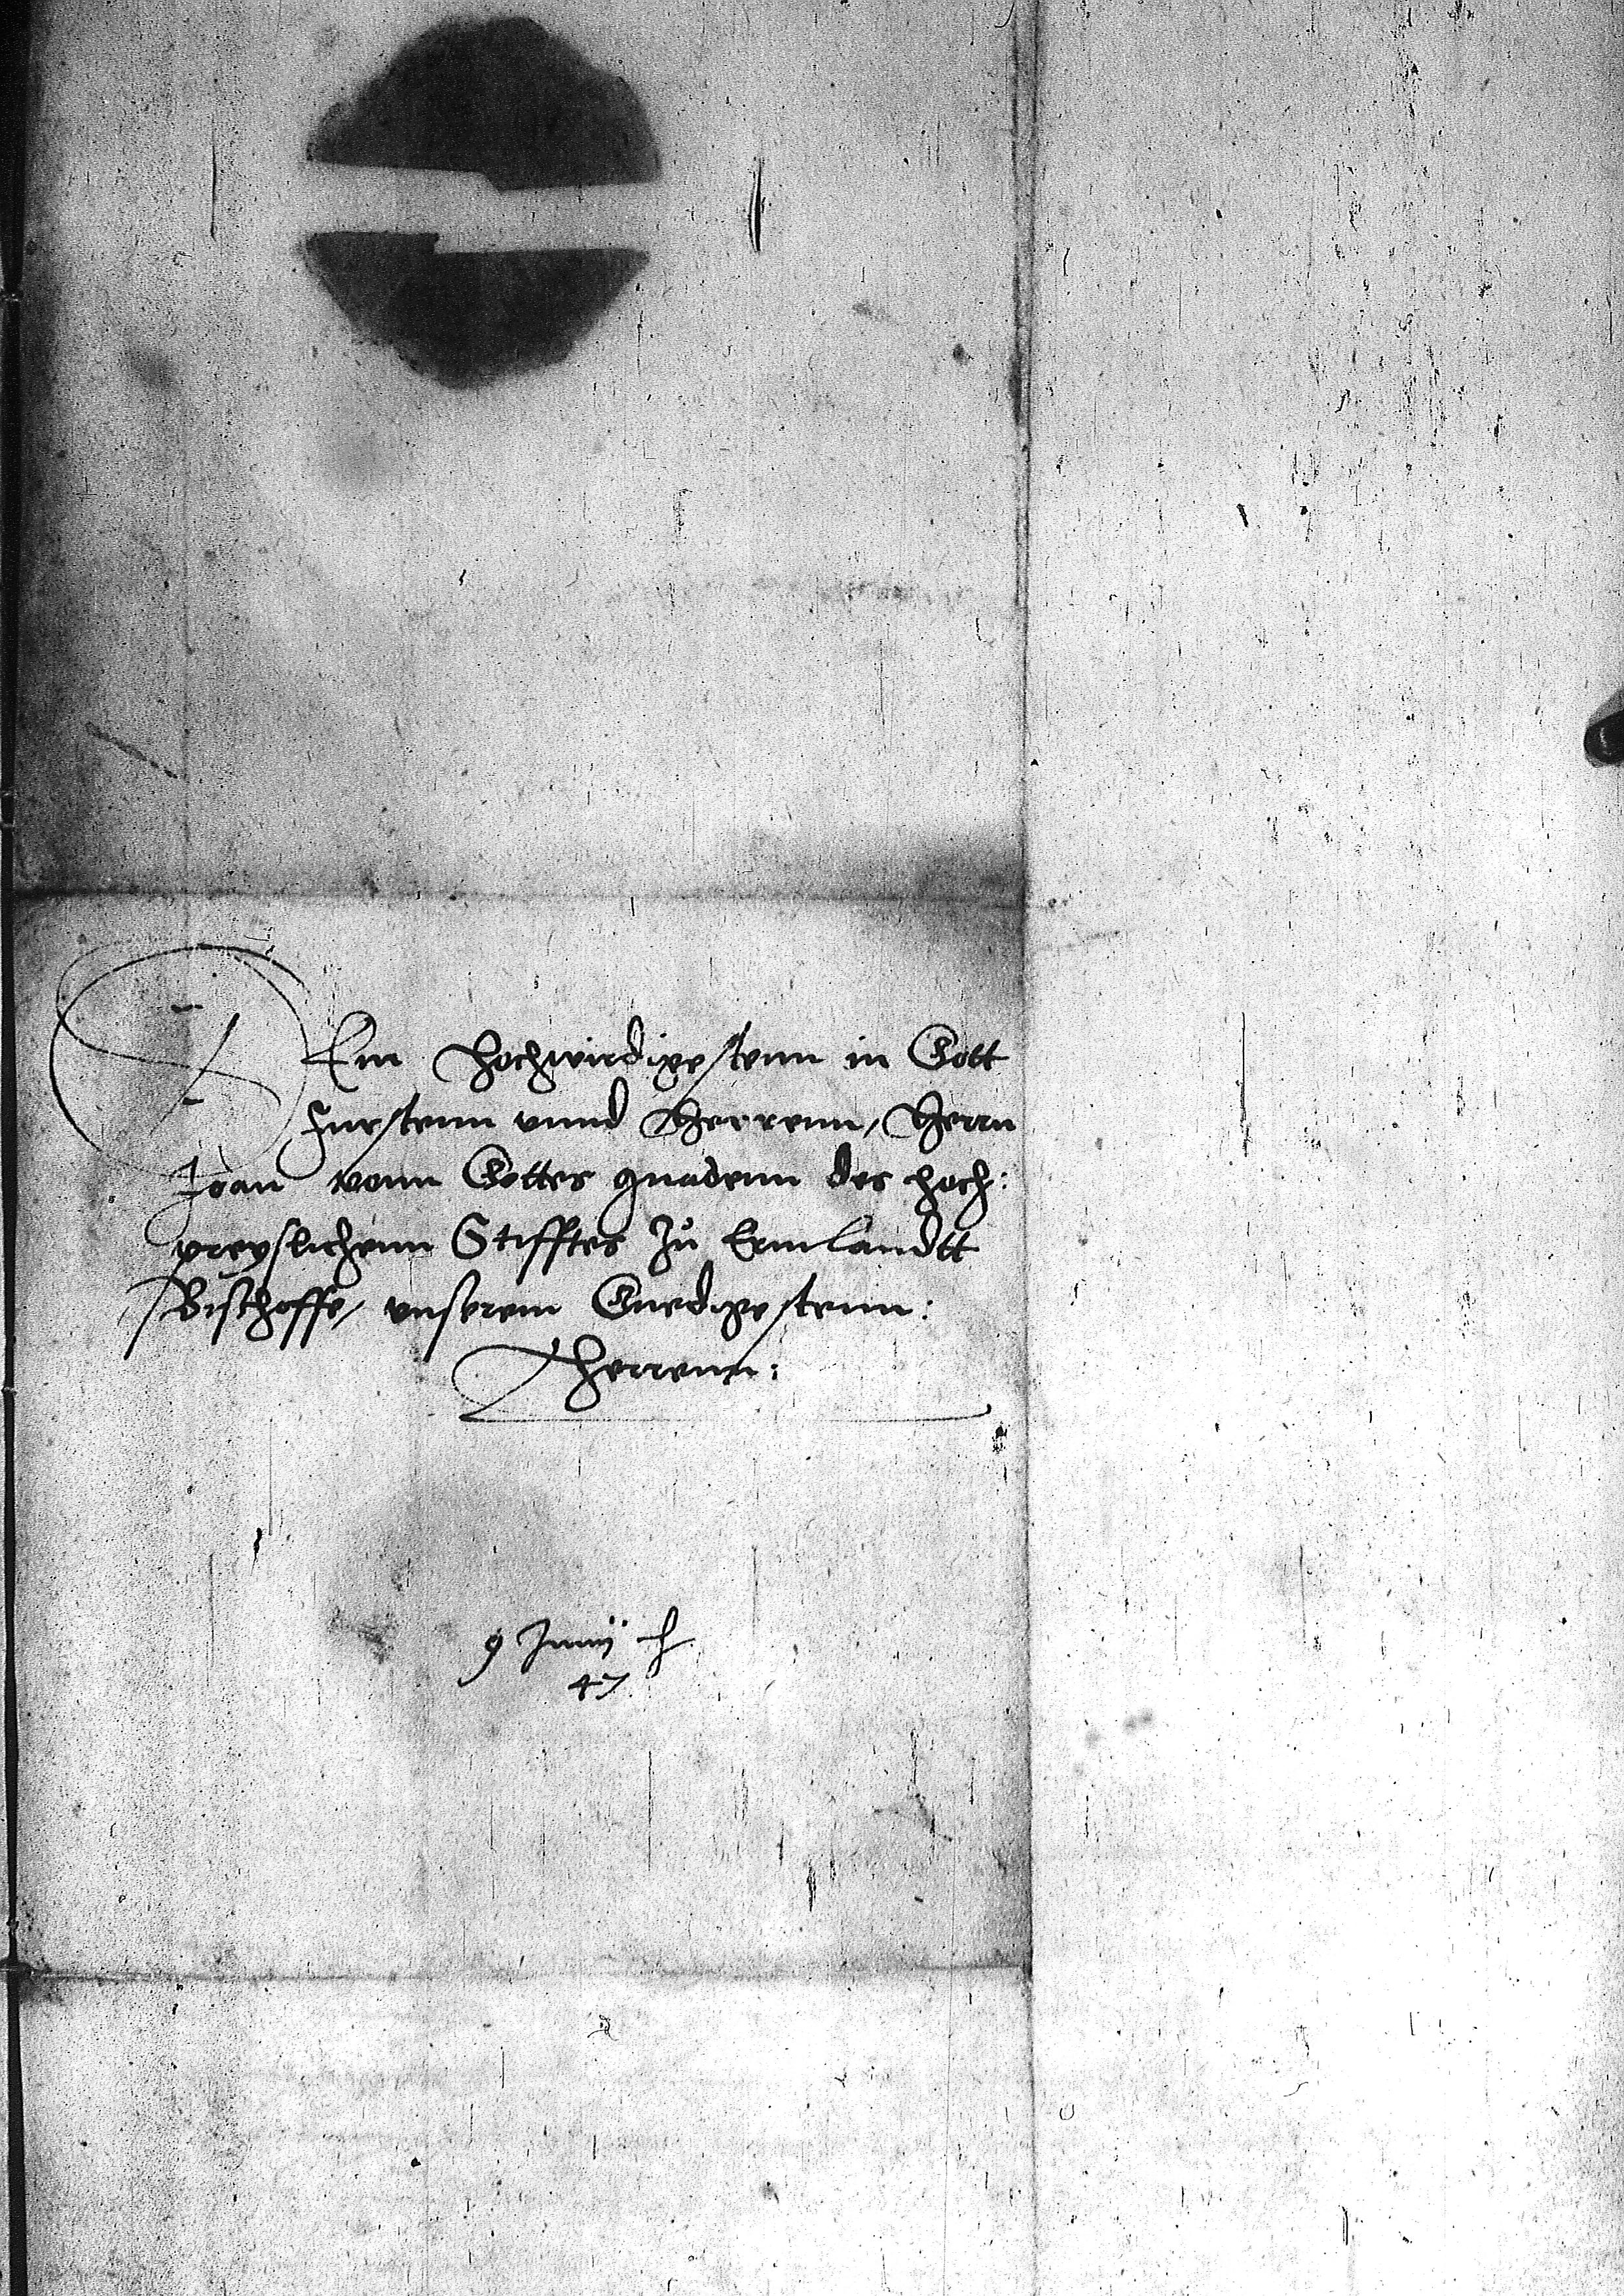 DEm Hochwirdigestenn in Gott
Furstenn vnnd Herrenn, Herrn
Joan vonn Gottes gnadenn des hoch:
preyslichenn Stifftes zu Ermlandtt
Bischoffe, vnserem Gnedigestenn:
Herrenn:
9 Junij
47